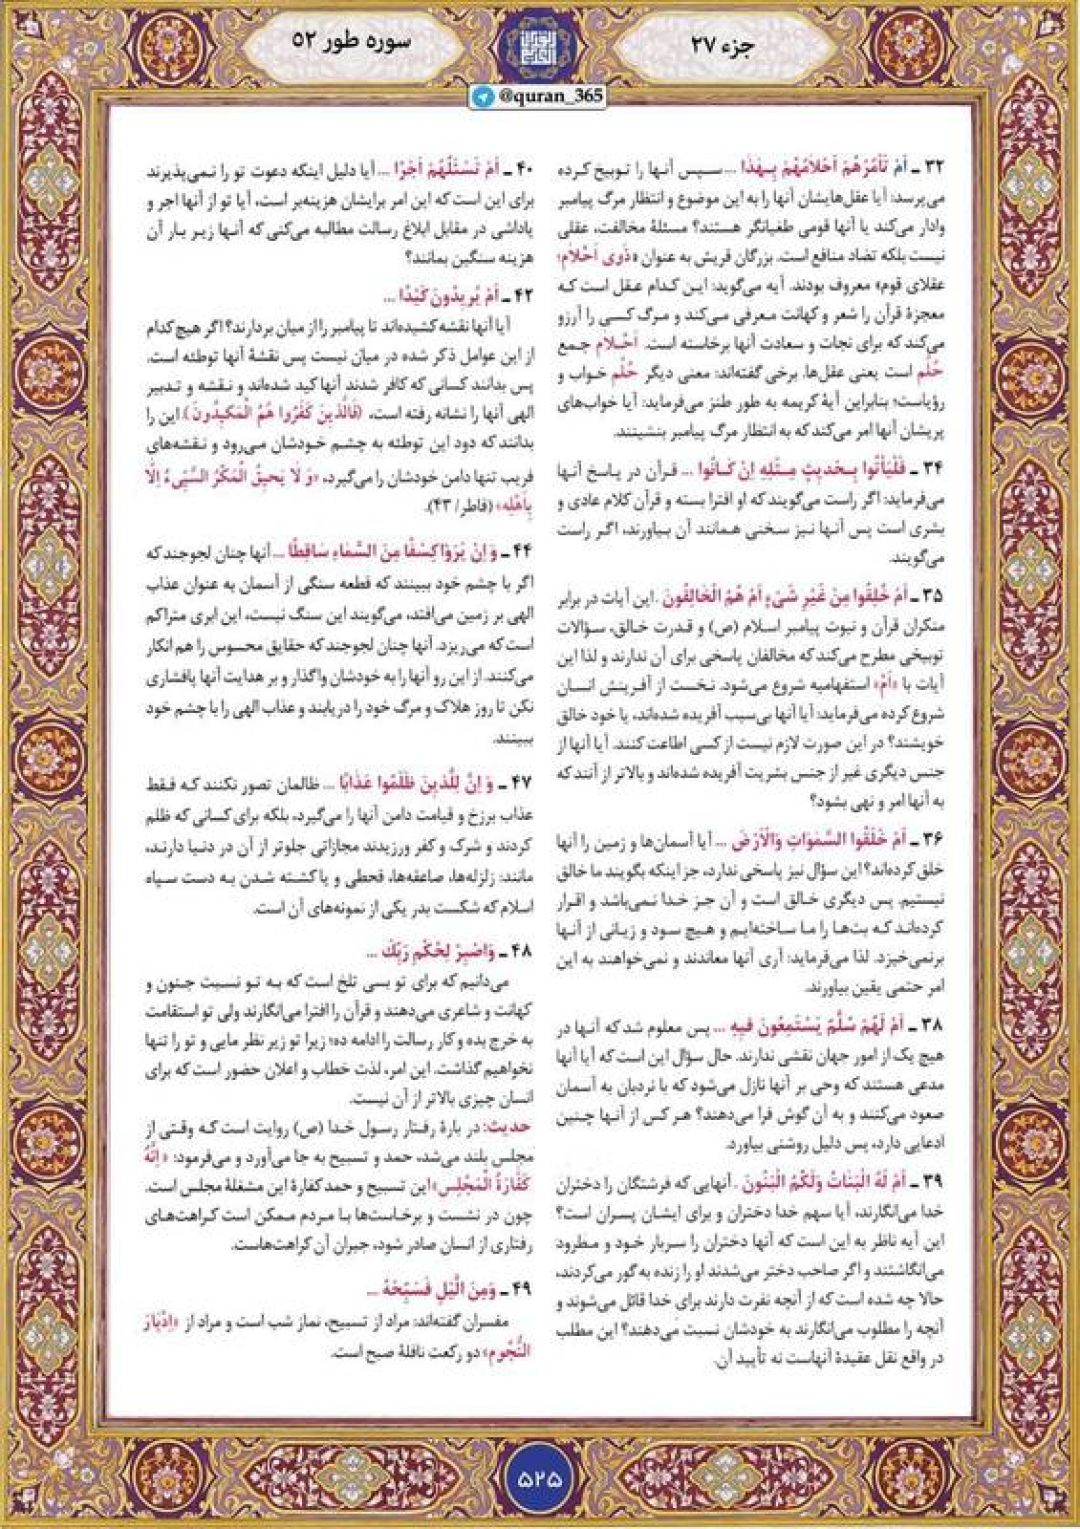 جزء ۲۷
سوره طور ۵۲
@quran_365
۳۲ ـ اَمْ تَأْمُرُهُمْ اَحْلَامُهُمْ بِهٰذَا ... سپس آنها را توبیخ کرده
می‌پرسد: آیا عقل‌هایشان آنها را به این موضوع و انتظار مرگ پیامبر
وادار می‌کند یا آنها قومی طغیانگر هستند؟ مسئلهٔ مخالفت، عقلی
نیست بلکه تضاد منافع است. بزرگان قریش به عنوان «ذَوِی اَحْلَام؛
عقلای قوم» معروف بودند. آیه می‌گوید: این کدام عقل است که
معجزهٔ قرآن را شعر و کهانت معرفی می‌کند و مرگ کسی را آرزو
می‌کند که برای نجات و سعادت آنها برخاسته است. اَحْلَام جمع
حُلْم است یعنی عقل‌ها. برخی گفته‌اند: معنی دیگر حُلْم خواب و
رؤیاست؛ بنابراین آیهٔ کریمه به طور طنز می‌فرماید: آیا خواب‌های
پریشان آنها امر می‌کند که به انتظار مرگ پیامبر بنشینند.
۳۴ ـ فَلْیَأْتُوا بِحَدِیثٍ مِثْلِهِ اِنْ کَانُوا ... قرآن در پاسخ آنها
می‌فرماید: اگر راست می‌گویند که او افترا بسته و قرآن کلام عادی و
بشری است پس آنها نیز سخنی همانند آن بیاورند، اگر راست
می‌گویند.
۳۵ ـ اَمْ خُلِقُوا مِنْ غَیْرِ شَیْءٍ اَمْ هُمُ الْخَالِقُونَ . این آیات در برابر
منکران قرآن و نبوت پیامبر اسلام (ص) و قدرت خالق، سؤالات
توبیخی مطرح می‌کند که مخالفان پاسخی برای آن ندارند و لذا این
آیات با «اَمْ» استفهامیه شروع می‌شود. نخست از آفرینش انسان
شروع کرده می‌فرماید: آیا آنها بی‌سبب آفریده شده‌اند، یا خود خالق
خویشند؟ در این صورت لازم نیست از کسی اطاعت کنند. آیا آنها از
جنس دیگری غیر از جنس بشریت آفریده شده‌اند و بالاتر از آنند که
به آنها امر و نهی بشود؟
۳۶ ـ اَمْ خَلَقُوا السَّمٰوَاتِ وَالْاَرْضَ ... آیا آسمان‌ها و زمین را آنها
خلق کرده‌اند؟ این سؤال نیز پاسخی ندارد، جز اینکه بگویند ما خالق
نیستیم. پس دیگری خالق است و آن جز خدا نمی‌باشد و اقرار
کرده‌اند که بت‌ها را ما ساخته‌ایم و هیچ سود و زیانی از آنها
برنمی‌خیزد. لذا می‌فرماید: آری آنها معاندند و نمی‌خواهند به این
امر حتمی یقین بیاورند.
۳۸ ـ اَمْ لَهُمْ سُلَّمٌ یَسْتَمِعُونَ فِیهِ ... پس معلوم شد که آنها در
هیچ یک از امور جهان نقشی ندارند. حال سؤال این است که آیا آنها
مدعی هستند که وحی بر آنها نازل می‌شود که با نردبان به آسمان
صعود می‌کنند و به آن گوش فرا می‌دهند؟ هر کس از آنها چنین
ادعایی دارد، پس دلیل روشنی بیاورد.
۳۹ ـ اَمْ لَهُ الْبَنَاتُ وَلَکُمُ الْبَنُونَ . آنهایی که فرشتگان را دختران
خدا می‌انگارند، آیا سهم خدا دختران و برای ایشان پسران است؟
این آیه ناظر به این است که آنها دختران را سربار خود و مطرود
می‌انگاشتند و اگر صاحب دختر می‌شدند او را زنده به گور می‌کردند،
حالا چه شده است که از آنچه نفرت دارند برای خدا قائل می‌شوند و
آنچه را مطلوب می‌انگارند به خودشان نسبت می‌دهند؟ این مطلب
در واقع نقل عقیدهٔ آنهاست نه تأیید آن.
۴۰ ـ اَمْ تَسْئَلُهُمْ اَجْرًا ... آیا دلیل اینکه دعوت تو را نمی‌پذیرند
برای این است که این امر برایشان هزینه‌بر است، آیا تو از آنها اجر و
پاداشی در مقابل ابلاغ رسالت مطالبه می‌کنی که آنها زیر بار آن
هزینه سنگین بمانند؟
۴۲ ـ اَمْ یُرِیدُونَ کَیْدًا ...
آیا آنها نقشه کشیده‌اند تا پیامبر را از میان بردارند؟ اگر هیچ کدام
از این عوامل ذکر شده در میان نیست پس نقشهٔ آنها توطئه است.
پس بدانند کسانی که کافر شدند آنها کید شده‌اند و نقشه و تدبیر
الهی آنها را نشانه رفته است، (فَالَّذِینَ کَفَرُوا هُمُ الْمَکِیدُونَ). این را
بدانند که دود این توطئه به چشم خودشان می‌رود و نقشه‌های
فریب تنها دامن خودشان را می‌گیرد، «وَ لَا یَحِیقُ الْمَکْرُ السَّیِّیءُ اِلَّا
بِاَهْلِهِ» (فاطر/ ۴۳).
۴۴ ـ وَ اِنْ یَرَوْا کِسْفًا مِنَ السَّمَاءِ سَاقِطًا ... آنها چنان لجوجند که
اگر با چشم خود ببینند که قطعه سنگی از آسمان به عنوان عذاب
الهی بر زمین می‌افتد، می‌گویند این سنگ نیست، این ابری متراکم
است که می‌ریزد. آنها چنان لجوجند که حقایق محسوس را هم انکار
می‌کنند. از این رو آنها را به خودشان واگذار و بر هدایت آنها پافشاری
نکن تا روز هلاک و مرگ خود را دریابند و عذاب الهی را با چشم خود
ببینند.
۴۷ ـ وَ اِنَّ لِلَّذِینَ ظَلَمُوا عَذَابًا ... ظالمان تصور نکنند که فقط
عذاب برزخ و قیامت دامن آنها را می‌گیرد، بلکه برای کسانی که ظلم
کردند و شرک و کفر ورزیدند مجازاتی جلوتر از آن در دنیا دارند،
مانند: زلزله‌ها، صاعقه‌ها، قحطی و یا کشته شدن به دست سپاه
اسلام که شکست بدر یکی از نمونه‌های آن است.
۴۸ ـ وَاصْبِرْ لِحُکْمِ رَبِّکَ ...
می‌دانیم که برای تو بسی تلخ است که به تو نسبت جنون و
کهانت و شاعری می‌دهند و قرآن را افترا می‌انگارند ولی تو استقامت
به خرج بده و کار رسالت را ادامه ده؛ زیرا تو زیر نظر مایی و تو را تنها
نخواهیم گذاشت. این امر، لذت خطاب و اعلان حضور است که برای
انسان چیزی بالاتر از آن نیست.
حدیث: در بارهٔ رفتار رسول خدا (ص) روایت است که وقتی از
مجلس بلند می‌شد، حمد و تسبیح به جا می‌آورد و می‌فرمود: «اِنَّهُ
کَفَّارَةُ الْمَجْلِسِ» این تسبیح و حمد کفارهٔ این مشغلهٔ مجلس است.
چون در نشست و برخاست‌ها با مردم ممکن است کراهت‌های
رفتاری از انسان صادر شود، جبران آن کراهت‌هاست.
۴۹ ـ وَمِنَ الَّیْلِ فَسَبِّحْهُ ...
مفسران گفته‌اند: مراد از تسبیح، نماز شب است و مراد از «اِدْبَارَ
النُّجُومِ» دو رکعت نافلهٔ صبح است.
۵۲۵